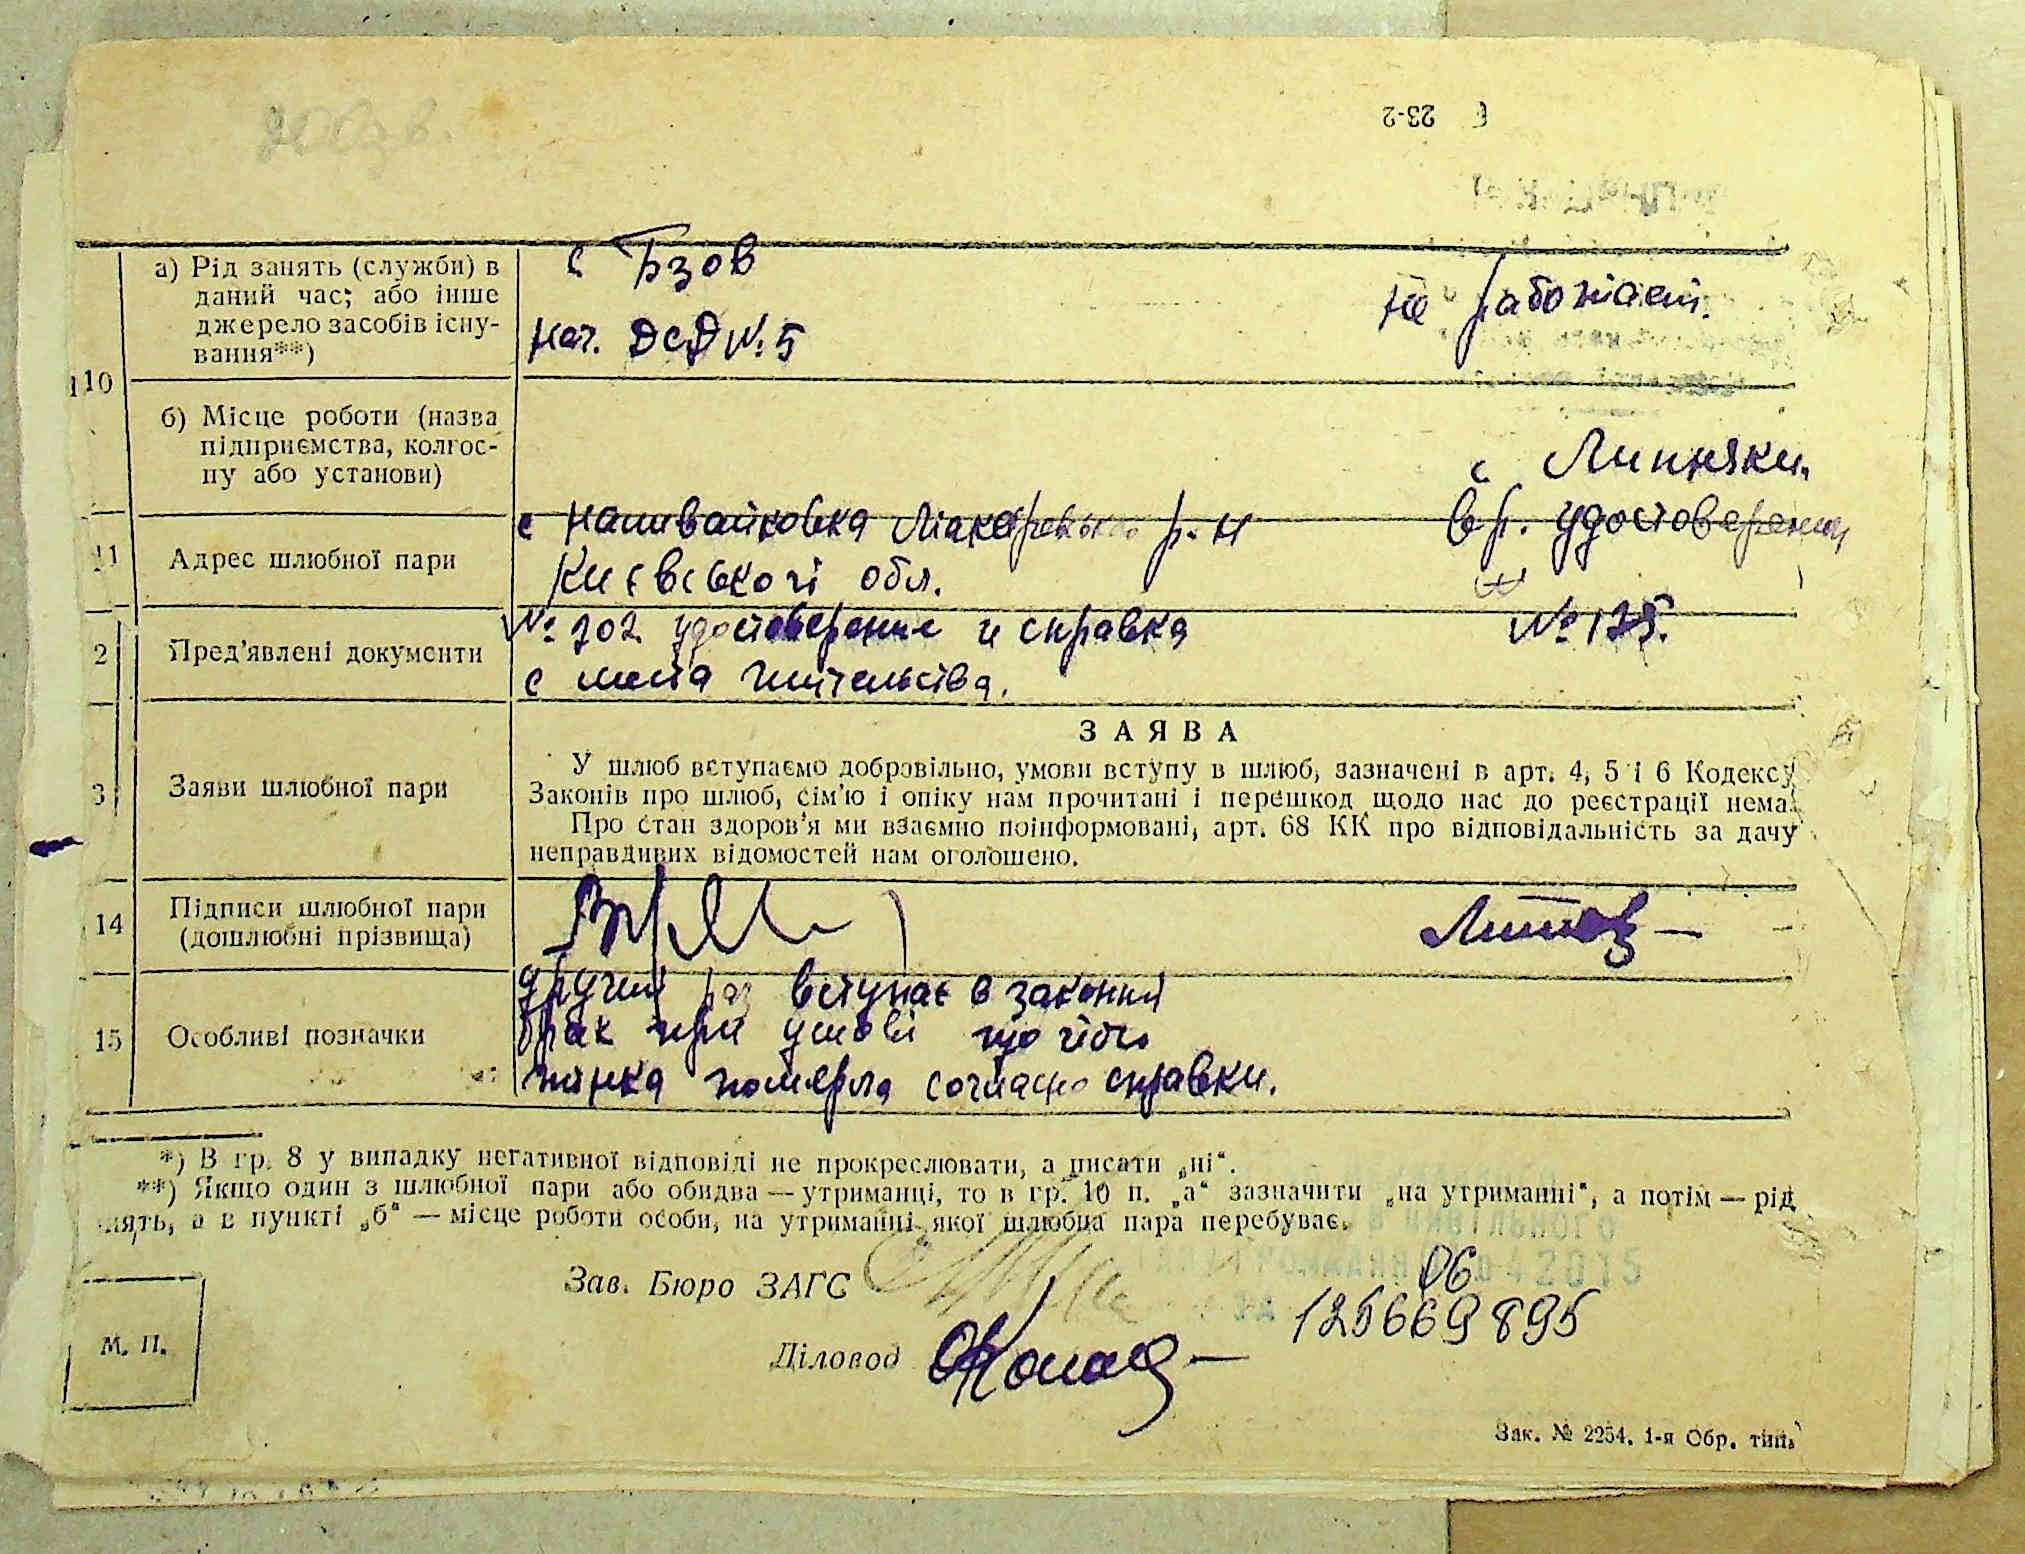 23-2
с Бзов
а) Рід занять (служби) в
даний час; або інше
джерело засобів існу-
вання**)
нач. ДСД №. 5
не работает.
10
б) Місце роботи (назва
підприємства, колгос-
пу або установи)
с Липняки,
11
Адрес шлюбної пари
с Наливайковка Макаревского р-н
Києвської обл.
вр. удостоверения
2
Пред'явлені документи
№ 202 удостоверение и справка
с места жительства.
№ 135.
3
Заяви шлюбної пари
ЗАЯВА
У шлюб вступаємо добровільно, умови вступу в шлюб, зазначені в арт. 4, 5 і 6 Кодексу
Законів про шлюб, сім'ю і опіку нам прочитані і перешкод щодо нас до реєстрації нема.
Про стан здоров'я ми взаємно поінформовані, арт. 68 КК про відповідальність за дачу
неправдивих відомостей нам оголошено.
14
Підписи шлюбної пари
(дошлюбні прізвища)
15
Особливі позначки
другий раз вступає в законий
брак при умові що його
жінка померла согласно справки.
*) В гр. 8 у випадку негативної відповіді не прокреслювати, а писати „ні".
**) Якщо один з шлюбної пари або обидва — утриманці, то в гр. 10 п. „а" зазначити „на утриманні", а потім — рід
нять, а в пункті „б" — місце роботи особи, на утриманні якої шлюбна пара перебуває.
Зав. Бюро ЗАГС
06
125669895
М. П.
Діловод
Зак. № 2254. 1-я Обр. тип.